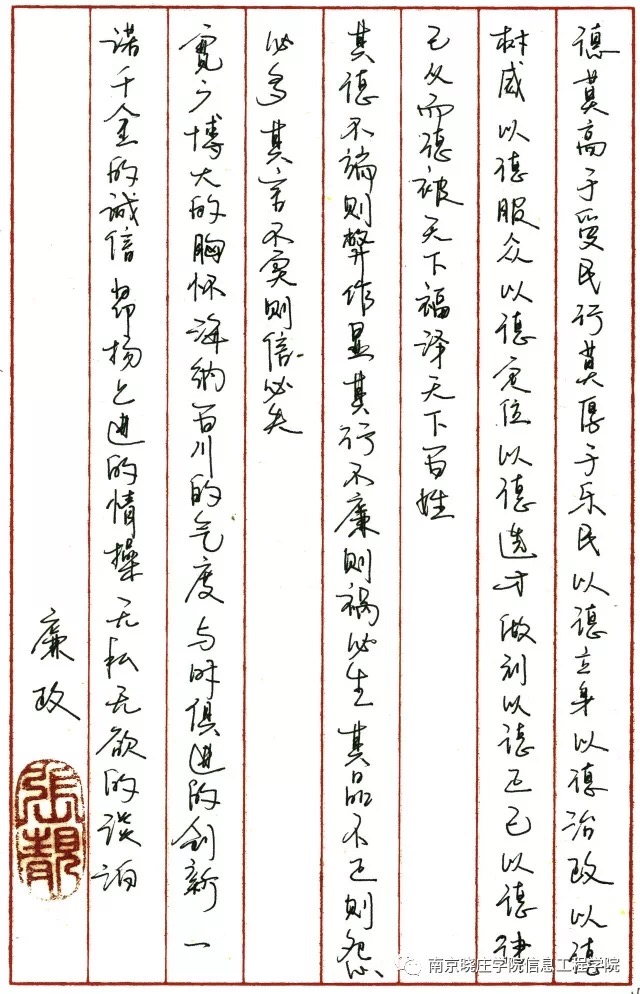 德莫高于爱民行莫厚于乐民以德立身以德治政以德
树威以德服众以德定位以德选才做到以德正己以德律
己从而德被天下福泽天下百姓
其德不端则弊作显其行不廉则祸必生其品不正则怨
必多其言不实则信必失
宽广博大的胸怀海纳百川的气度与时俱进的创新一
诺千金的诚信昂扬上进的情操无私无欲的淡泊
廉政
张靓
南京晓庄学院信息工程学院